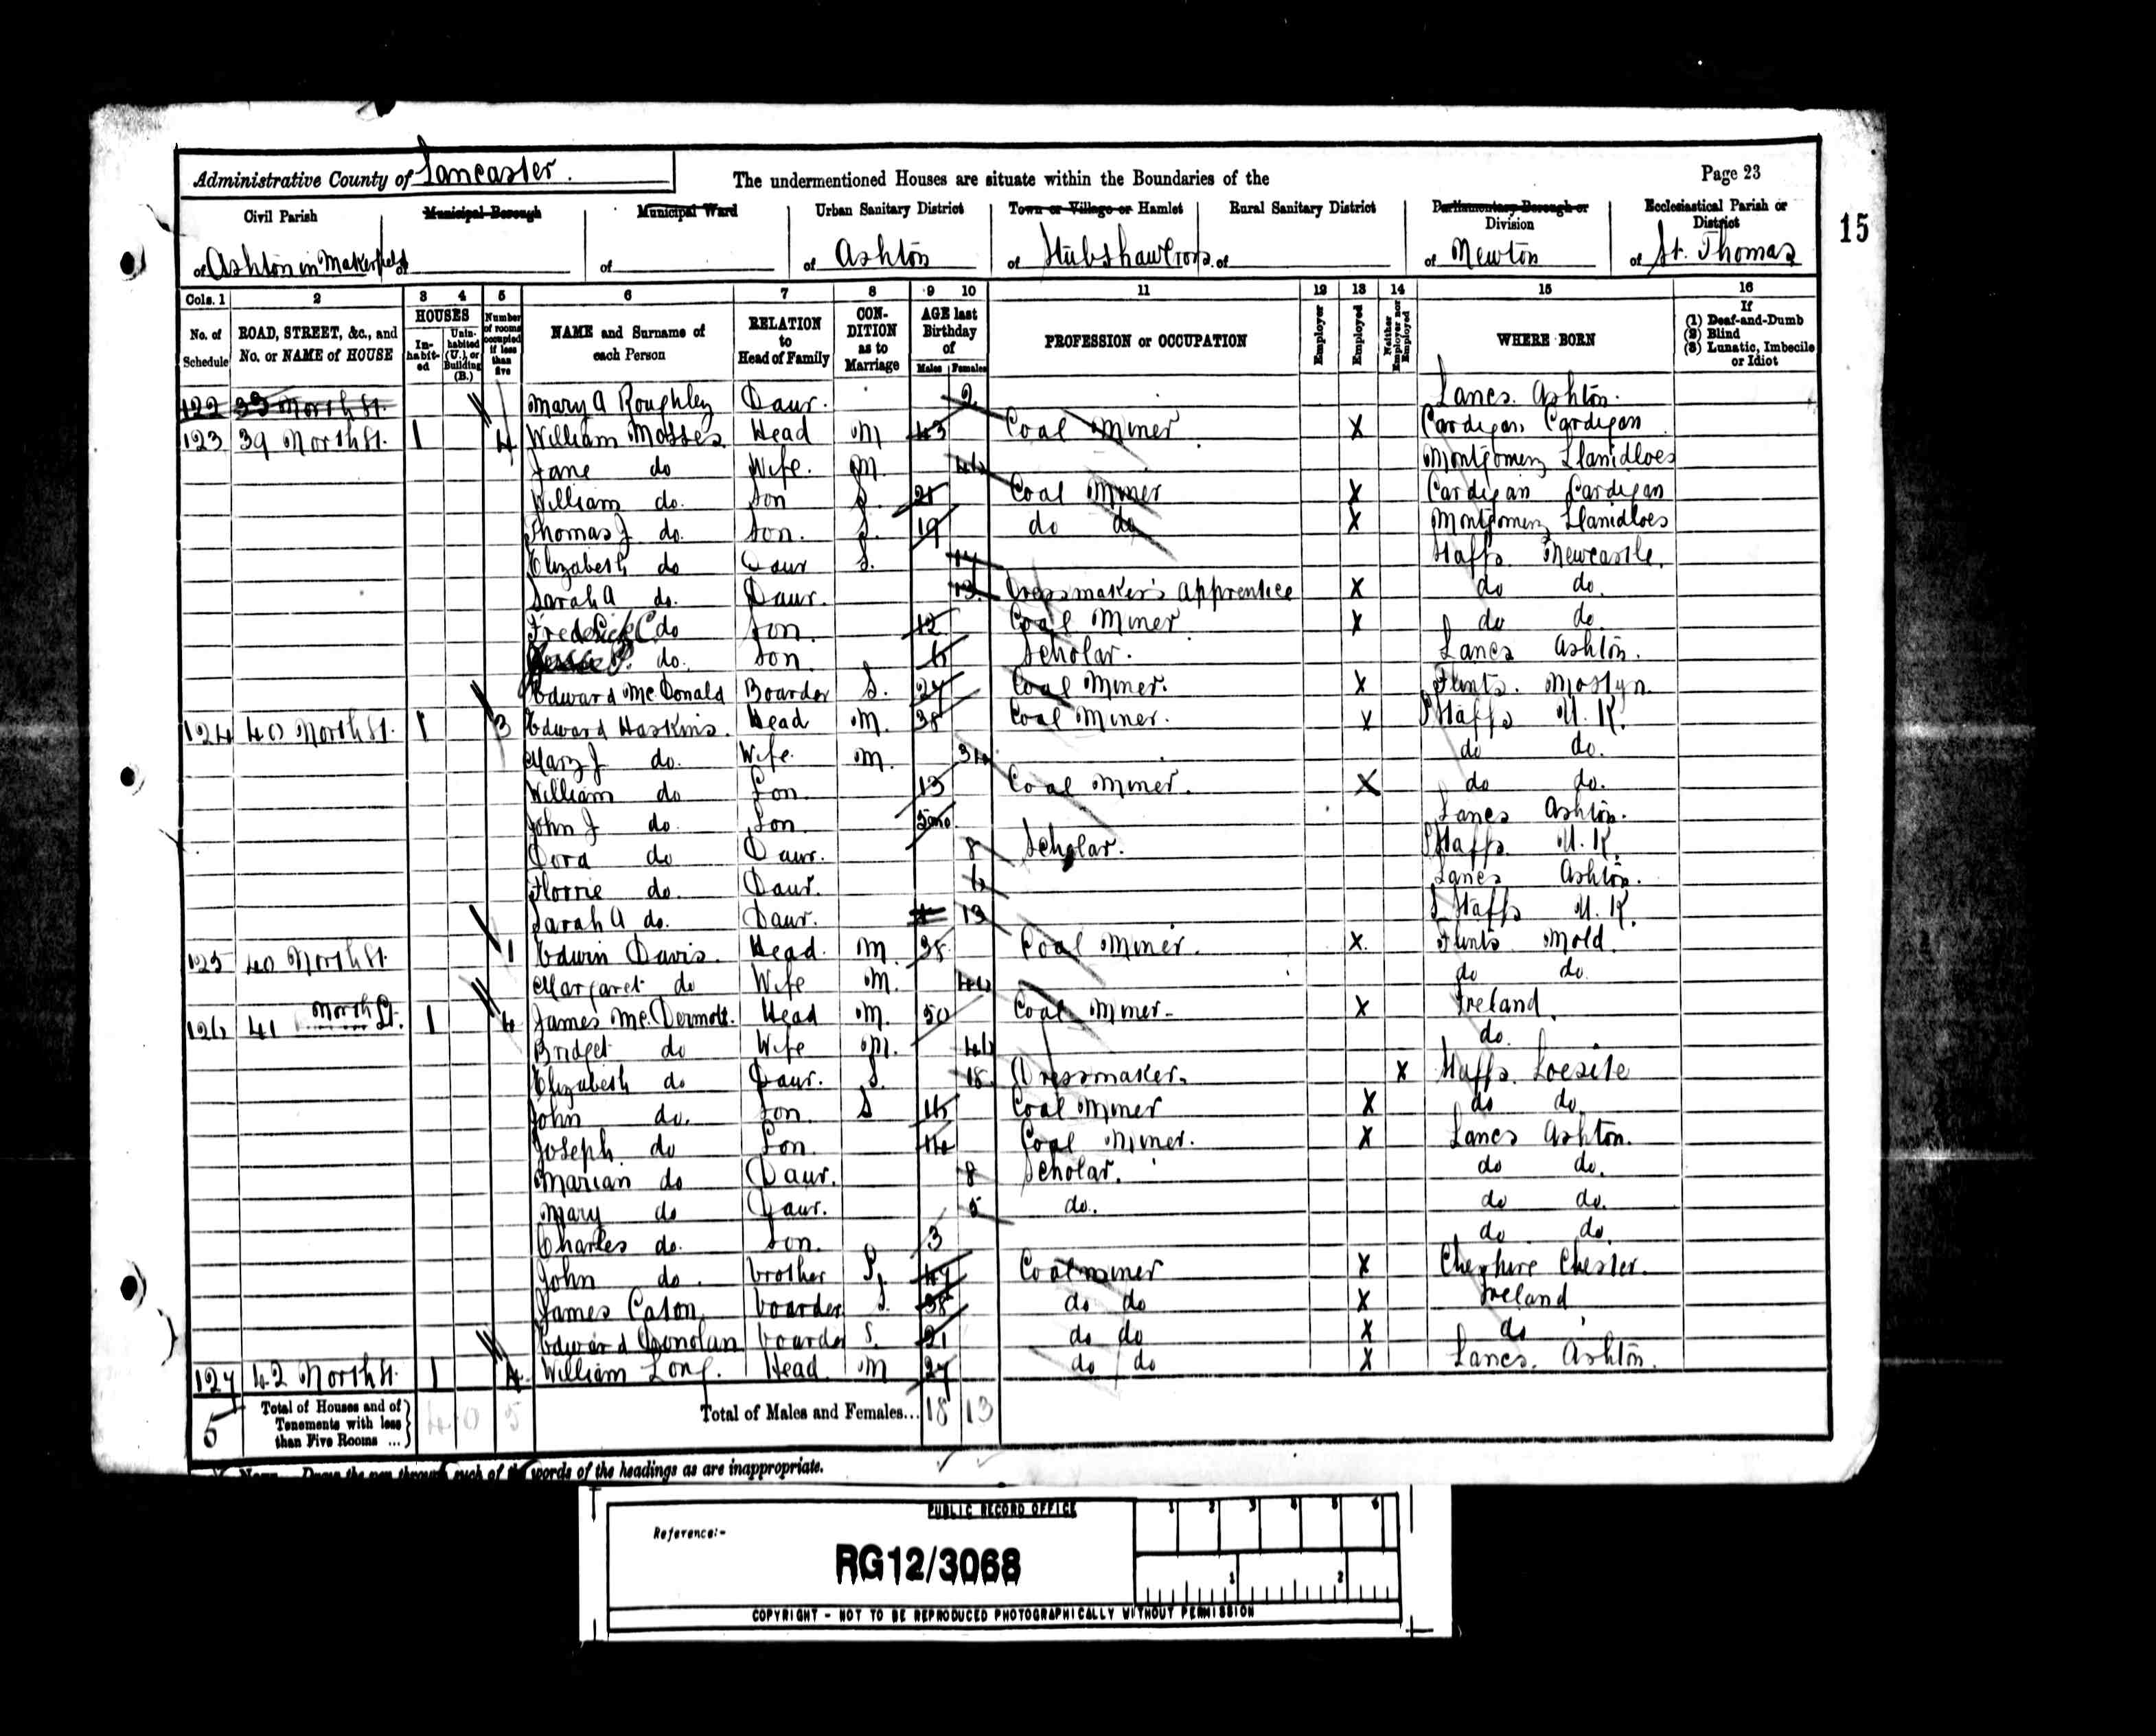 Administrative County of Lancaster.
The undermentioned Houses are situate within the Boundaries of the
Page 23
15
Civil Parish
of Ashton in Makerfield
Municipal Borough
of
Municipal Ward
of
Urban Sanitary District
of Ashton
Town or Village or Hamlet
of Stubshaw Cross
Rural Sanitary District
of
Parliamentary Borough or Division
of Newton
Ecclesiastical Parish or District
of St. Thomas
Cols. 1 2 3 4 5 6 7 8 9 10 11 12 13 14 15 16
No. of Schedule
ROAD, STREET, &c., and No. or NAME of HOUSE
HOUSES
In-habit-ed
Unin-habited (U.), or Building (B.)
Number of rooms occupied if less than five
NAME and Surname of each Person
RELATION to Head of Family
CON-DITION as to Marriage
AGE last Birthday of
Males Females
PROFESSION or OCCUPATION
Employer
Employed
Neither Employer nor Employed
WHERE BORN
If
(1) Deaf-and-Dumb
(2) Blind
(3) Lunatic, Imbecile or Idiot
122 33 North St. Mary A Roughley Daur. 2 Lancs. Ashton.
123 39 North St. 1 4 William Mosses Head M 43 Coal Miner X Cardigan, Cardigan
Jane do Wife. M. 46 Montgomery Llanidloes
William do. Son S. 21 Coal Miner X Cardigan Cardigan
Thomas J do. Son. S. 19 do do X Montgomery Llanidloes
Elizabeth do Daur S. 17 Staffs Newcastle.
Sarah A do. Daur. 13. Dressmaker's Apprentice X do do.
Frederick C do Son. 12 Coal Miner. X do do.
P. do. Son. 6 Scholar. Lancs Ashton.
Edward Mc Donald Boarder S. 27 Coal Miner. X Flints. Mostyn.
124 40 North St. 1 3 Edward Haskins. Head M. 38 Coal Miner. X Staffs N. K.
Mary J do. Wife. M. 36 do do.
William do Son. 13 Coal Miner. X do do.
John J do. Son. 5 mo Lancs Ashton.
Dora do Daur. 8 Scholar. Staffs N. K.
Florrie do. Daur. 6 Lancs Ashton.
Sarah A do. Daur. 13 Staffs N. K.
125 40 North St. 1 Edwin Davis. Head. M. 38 Coal Miner. X. Flints Mold.
Margaret do Wife M. 46 do do
126 41 North St. 1 4 James Mc. Dermott. Head M. 50 Coal Miner- X Ireland.
Bridget do Wife M. 46 do.
Elizabeth do Daur. S. 18. Dressmaker. X Staffs.
John do. Son. S 16 Coal Miner X do do
Joseph. do Son. 14 Coal Miner. X Lancs Ashton.
Marian do Daur. 8 Scholar. do do.
Mary do Daur. 5 do. do do.
Charles do. Son. 3 do do.
John do. brother S. 47 Coal miner X Cheshire Chester.
James Caton. boarder S. 38 do do X Ireland
Edward Donolan boarder S. 21 do do X do
127 42 North St. 1 4. William Long. Head M 27 do do X Lancs. Ashton.
5 Total of Houses and of Tenements with less than Five Rooms ... 4 0 5
Total of Males and Females... 18 13
Note.—Draw the pen through such of the words of the headings as are inappropriate.
PUBLIC RECORD OFFICE
1 2 3 4 5 6
Reference:-
RG12/3068
1 2
COPYRIGHT - NOT TO BE REPRODUCED PHOTOGRAPHICALLY WITHOUT PERMISSION